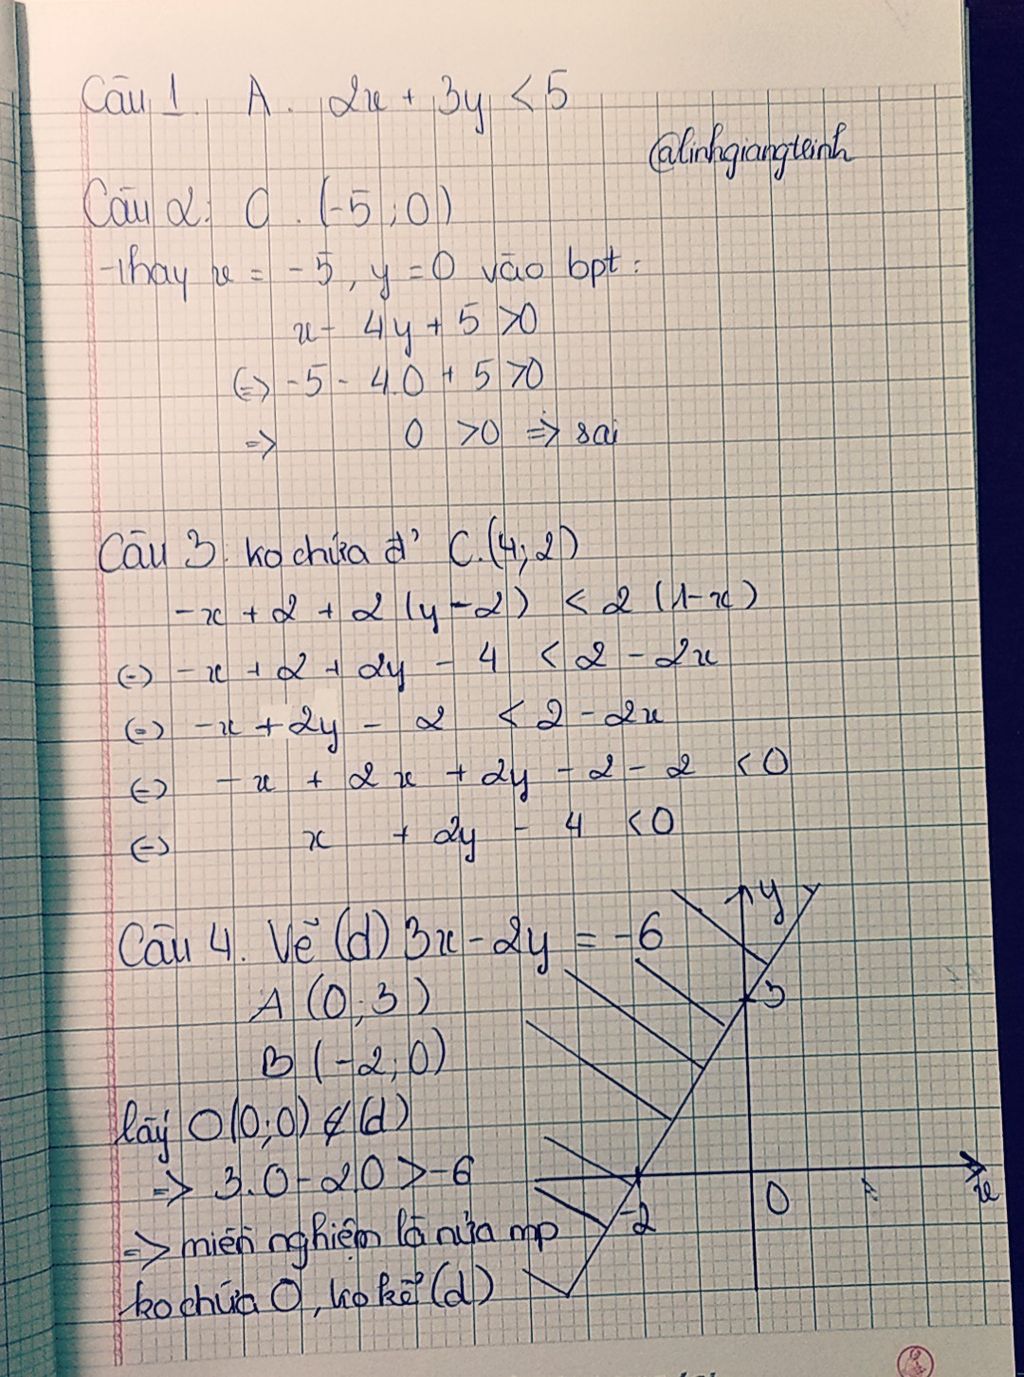 Câu 1. A. 2x + 3y < 5
@linhgiangteinh
Câu 2: C. (-5; 0)
Thay x = -5, y = 0 vào bpt:
x - 4y + 5 > 0
(=) -5 - 4.0 + 5 > 0
=> 0 > 0 => sai
Câu 3: ko chứa đ' C. (4; 2)
-x + 2 + 2(y - 2) < 2(1 - x)
(=) -x + 2 + 2y - 4 < 2 - 2x
(=) -x + 2y - 2 < 2 - 2x
(=) -x + 2x + 2y - 2 - 2 < 0
(=) x + 2y - 4 < 0
Câu 4. Vẽ (d) 3x - 2y = -6
A (0; 3)
B (-2; 0)
lấy O(0; 0) ∉ (d)
=> 3.0 - 2.0 > -6
=> miền nghiệm là nửa mp
ko chứa O, ko kể (d)
y
3
-2
O
x